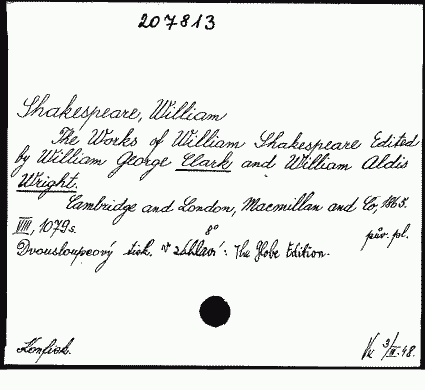 207813
Shakespeare, William
The Works of William Shakespeare Edited
by William George Clark and William Aldis
Wright.
Cambridge and London, Macmillan and Co, 1865.
VIII, 1079 s. 8° pův. pl.
Dvousloupcový tisk. V záhlaví: The Globe Edition.
Konfisk. 3/III.48.